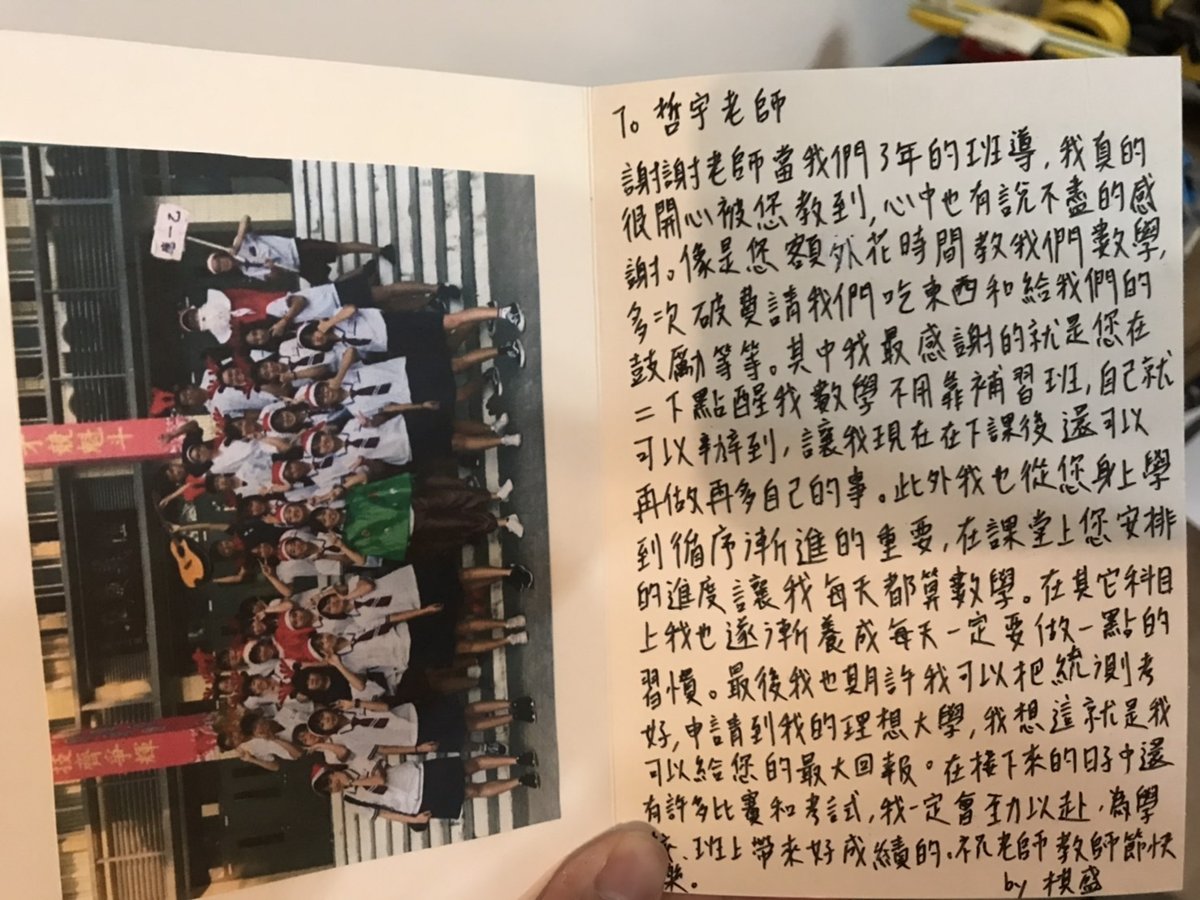 To 哲宇老師
謝謝老師當我們3年的班導,我真的
很開心被您教到,心中也有說不盡的感
謝。像是您額外花時間教我們數學,
多次破費請我們吃東西和給我們的
鼓勵等等。其中我最感謝的就是您在
二下點醒我數學不用靠補習班,自己就
可以辦到,讓我現在在下課後還可以
再做再多自己的事。此外我也從您身上學
到循序漸進的重要,在課堂上您安排
的進度讓我每天都算數學。在其它科目
上我也遂漸養成每天一定要做一點的
習慣。最後我也期許我可以把統測考
好,申請到我的理想大學,我想這就是我
可以給您的最大回報。在接下來的日子中還
有許多比賽和考試,我一定會至力以赴,為學
、班上帶來好成績的。祝老師教師節快
樂。
by 棋盛
技齊爭輝